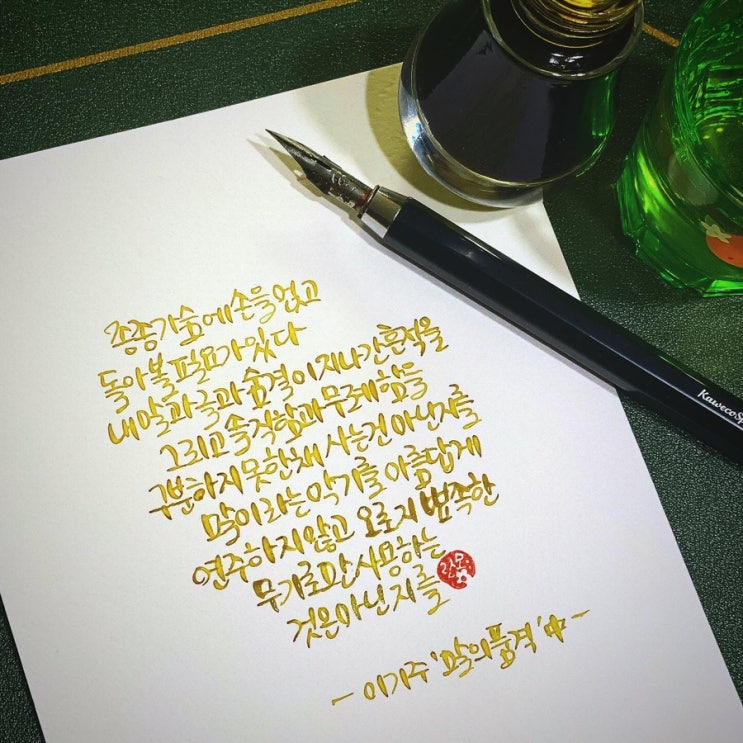 종종 가슴에 손을 얹고
돌아볼 필요가 있다
내 말과 글과 숨결이 지나간 흔적을
그리고 솔직함과 무례함을
구분하지 못한 채 사는건 아닌지를
말이라는 악기를 아름답게
연주하지 않고 오로지 뾰족한
무기로만 사용하는
것은 아닌지를
- 이기주 '말의 품격' 中 -
KawecoSp